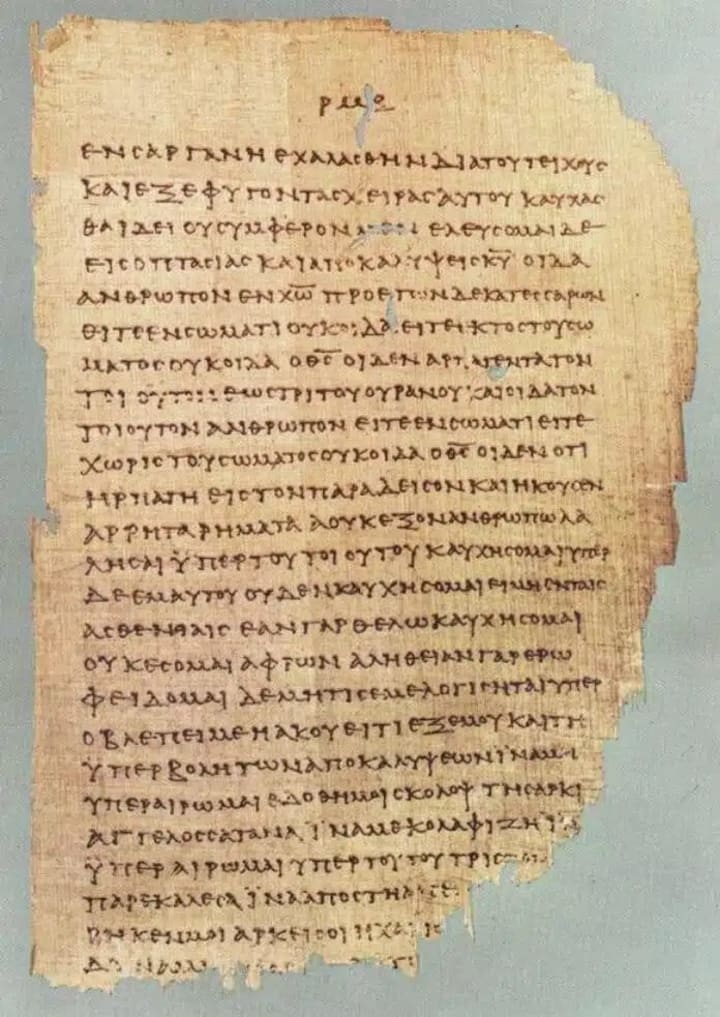 ΕΝΣΑΡΓΑΝΗΕΧΑΛΑΣΘΗΝΔΙΑΤΟΥΤΕΙΧΟΥΣ
ΚΑΙΕΞΕΦΥΓΟΝΤΑΣΧΕΙΡΑΣΑΥΤΟΥΚΑΥΧΑΣ
ΘΑΙΔΕΙΟΥΣΥΜΦΕΡΟΝΜΕΝΕΛΕΥΣΟΜΑΙΔΕ
ΕΙΣΟΠΤΑΣΙΑΣΚΑΙΑΠΟΚΑΛΥΨΕΙΣΚ̅Υ̅ΟΙΔΑ
ΑΝΘΡΩΠΟΝΕΝΧ̅Ω̅ΠΡΟΕΤΩΝΔΕΚΑΤΕΣΣΑΡΩΝ
ΕΙΤΕΕΝΣΩΜΑΤΙΟΥΚΟΙΔΑΕΙΤΕΕΚΤΟΣΤΟΥΣΩ
ΜΑΤΟΣΟΥΚΟΙΔΑΟΘ̅Σ̅ΟΙΔΕΝΑΡΠΑΓΕΝΤΑΤΟΝ
ΤΟΙΟΥΤΟΝΕΩΣΤΡΙΤΟΥΟΥΡΑΝΟΥΚΑΙΟΙΔΑΤΟΝ
ΤΟΙΟΥΤΟΝΑΝΘΡΩΠΟΝΕΙΤΕΕΝΣΩΜΑΤΙΕΙΤΕ
ΧΩΡΙΣΤΟΥΣΩΜΑΤΟΣΟΥΚΟΙΔΑΟΘ̅Σ̅ΟΙΔΕΝΟΤΙ
ΗΡΠΑΓΗΕΙΣΤΟΝΠΑΡΑΔΕΙΣΟΝΚΑΙΗΚΟΥΣΕΝ
ΑΡΡΗΤΑΡΗΜΑΤΑΑΟΥΚΕΞΟΝΑΝΘΡΩΠΩΛΑ
ΛΗΣΑΙΫΠΕΡΤΟΥΤΟΙΟΥΤΟΥΚΑΥΧΗΣΟΜΑΙΥΠΕΡ
ΔΕΕΜΑΥΤΟΥΟΥΔΕΝΚΑΥΧΗΣΟΜΑΙΕΙΜΗΕΝΤΑΙΣ
ΑΣΘΕΝΕΙΑΙΣΕΑΝΓΑΡΘΕΛΩΚΑΥΧΗΣΟΜΑΙ
ΟΥΚΕΣΟΜΑΙΑΦΡΩΝΑΛΗΘΕΙΑΝΓΑΡΕΡΩ
ΦΕΙΔΟΜΑΙΔΕΜΗΤΙΣΕΜΕΛΟΓΙΣΗΤΑΙΥΠΕΡ
ΟΒΛΕΠΕΙΜΕΗΑΚΟΥΕΙΤΙΕΞΕΜΟΥΚΑΙΤΗ
ΫΠΕΡΒΟΛΗΤΩΝΑΠΟΚΑΛΥΨΕΩΝΪΝΑΜΗ
ΥΠΕΡΑΙΡΩΜΑΙΕΔΟΘΗΜΟΙΣΚΟΛΟΨΤΗΣΑΡΚΙ
ΑΓΓΕΛΟΣΣΑΤΑΝΑΪΝΑΜΕΚΟΛΑΦΙΖΗΪΝΑ
ΫΠΕΡΑΙΡΩΜΑΙΥΠΕΡΤΟΥΤΟΥΤΡΙΣ
ΠΑΡΕΚΑΛΕΣΑΪΝΑΑΠΟΣΤΗΑΠΕ
ΡΗΚΕΝΜΟΙΑΡΚΕΙΣΟΙΗΧΑΡΙΣ